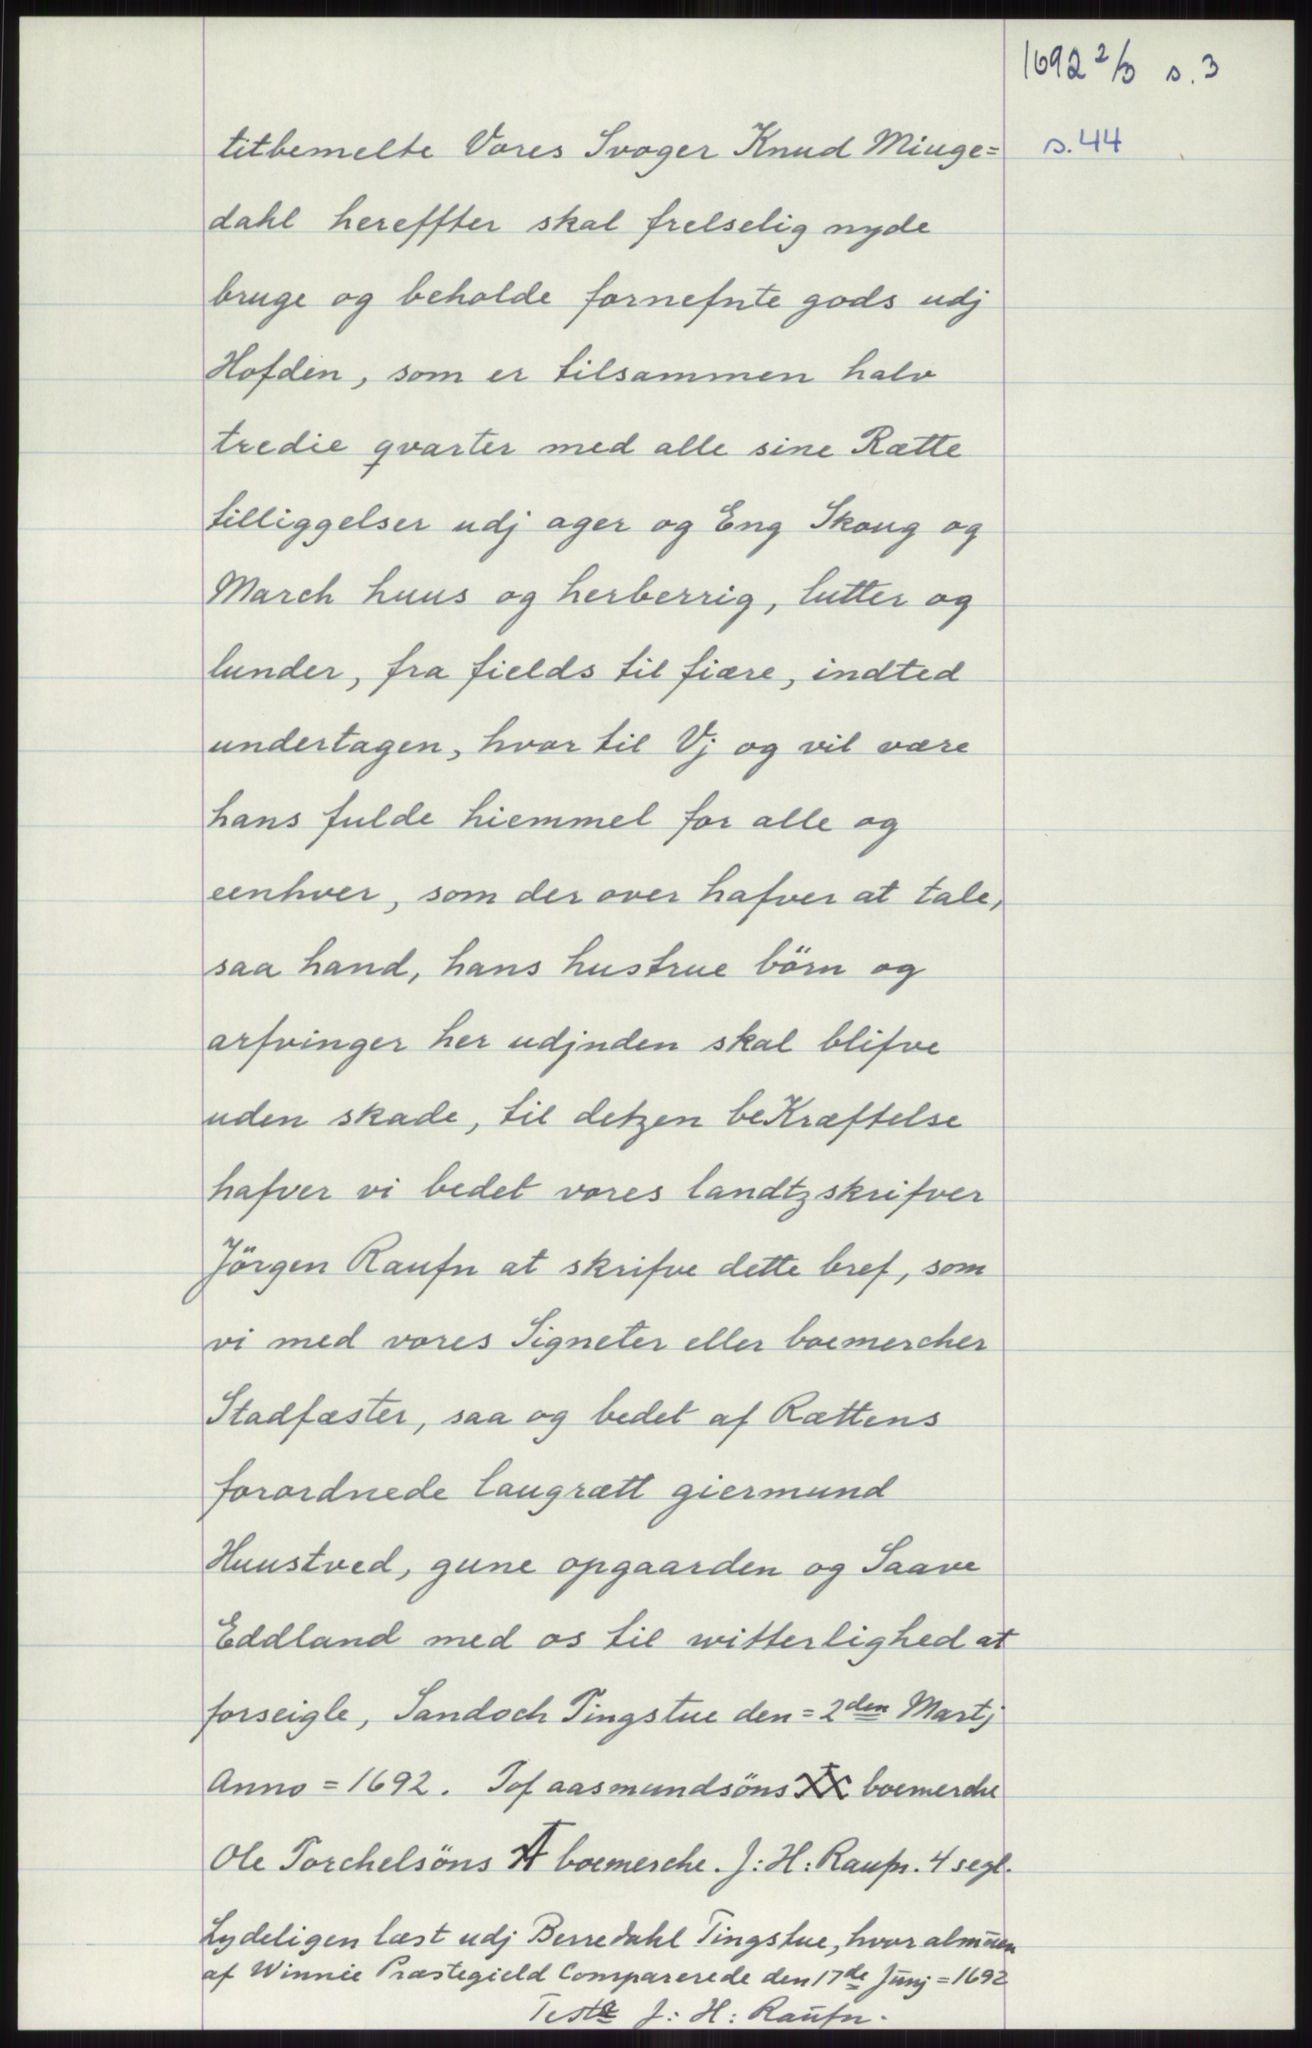 1692 2/3 s. 3
s. 44
titbemelte Vores Svoger Knud Miuge=
dahl hereffter skal frelselig nyde
bruge og beholde fornefnte gods udj
Hofden, som er tilsammen halv
tredie qvarter med alle sine Rætte
tilliggelser udj ager og Eng Skoug og
March huus og herberrig, lutter og
lunder, fra fields til fiære, indted
undertagen, hvor til Vj og vil være
hans fulde hiemmel for alle og
eenhver, som der over hafver at tale,
saa hand, hans hustrue börn og
arfvinger her udjnden skal blifve
uden skade, til detzen beKræftelse
hafver vi bedet vores landtzskrifver
Jörgen Raufn at skrifve dette bref, som
vi med vores Signeter eller boemercher
Stadfæster, saa og bedet af Rættens
forordnede laugrætt giermund
Huustved, gune opgaarden og Saave
Eddland med os til witterlighed at
forseigle, Sandoch Tingstue den = 2den Martj
Anno = 1692. Tof aasmundsöns boemerche
Ole Torchelsöns boemerche. J: H: Raufn. 4 segl.
Lydeligen læst udj Berredahl Tingstue, hvor almuen
af Winnie Præstegield Comparerede den 17de Junj = 1692
Teste J: H: Raufn.